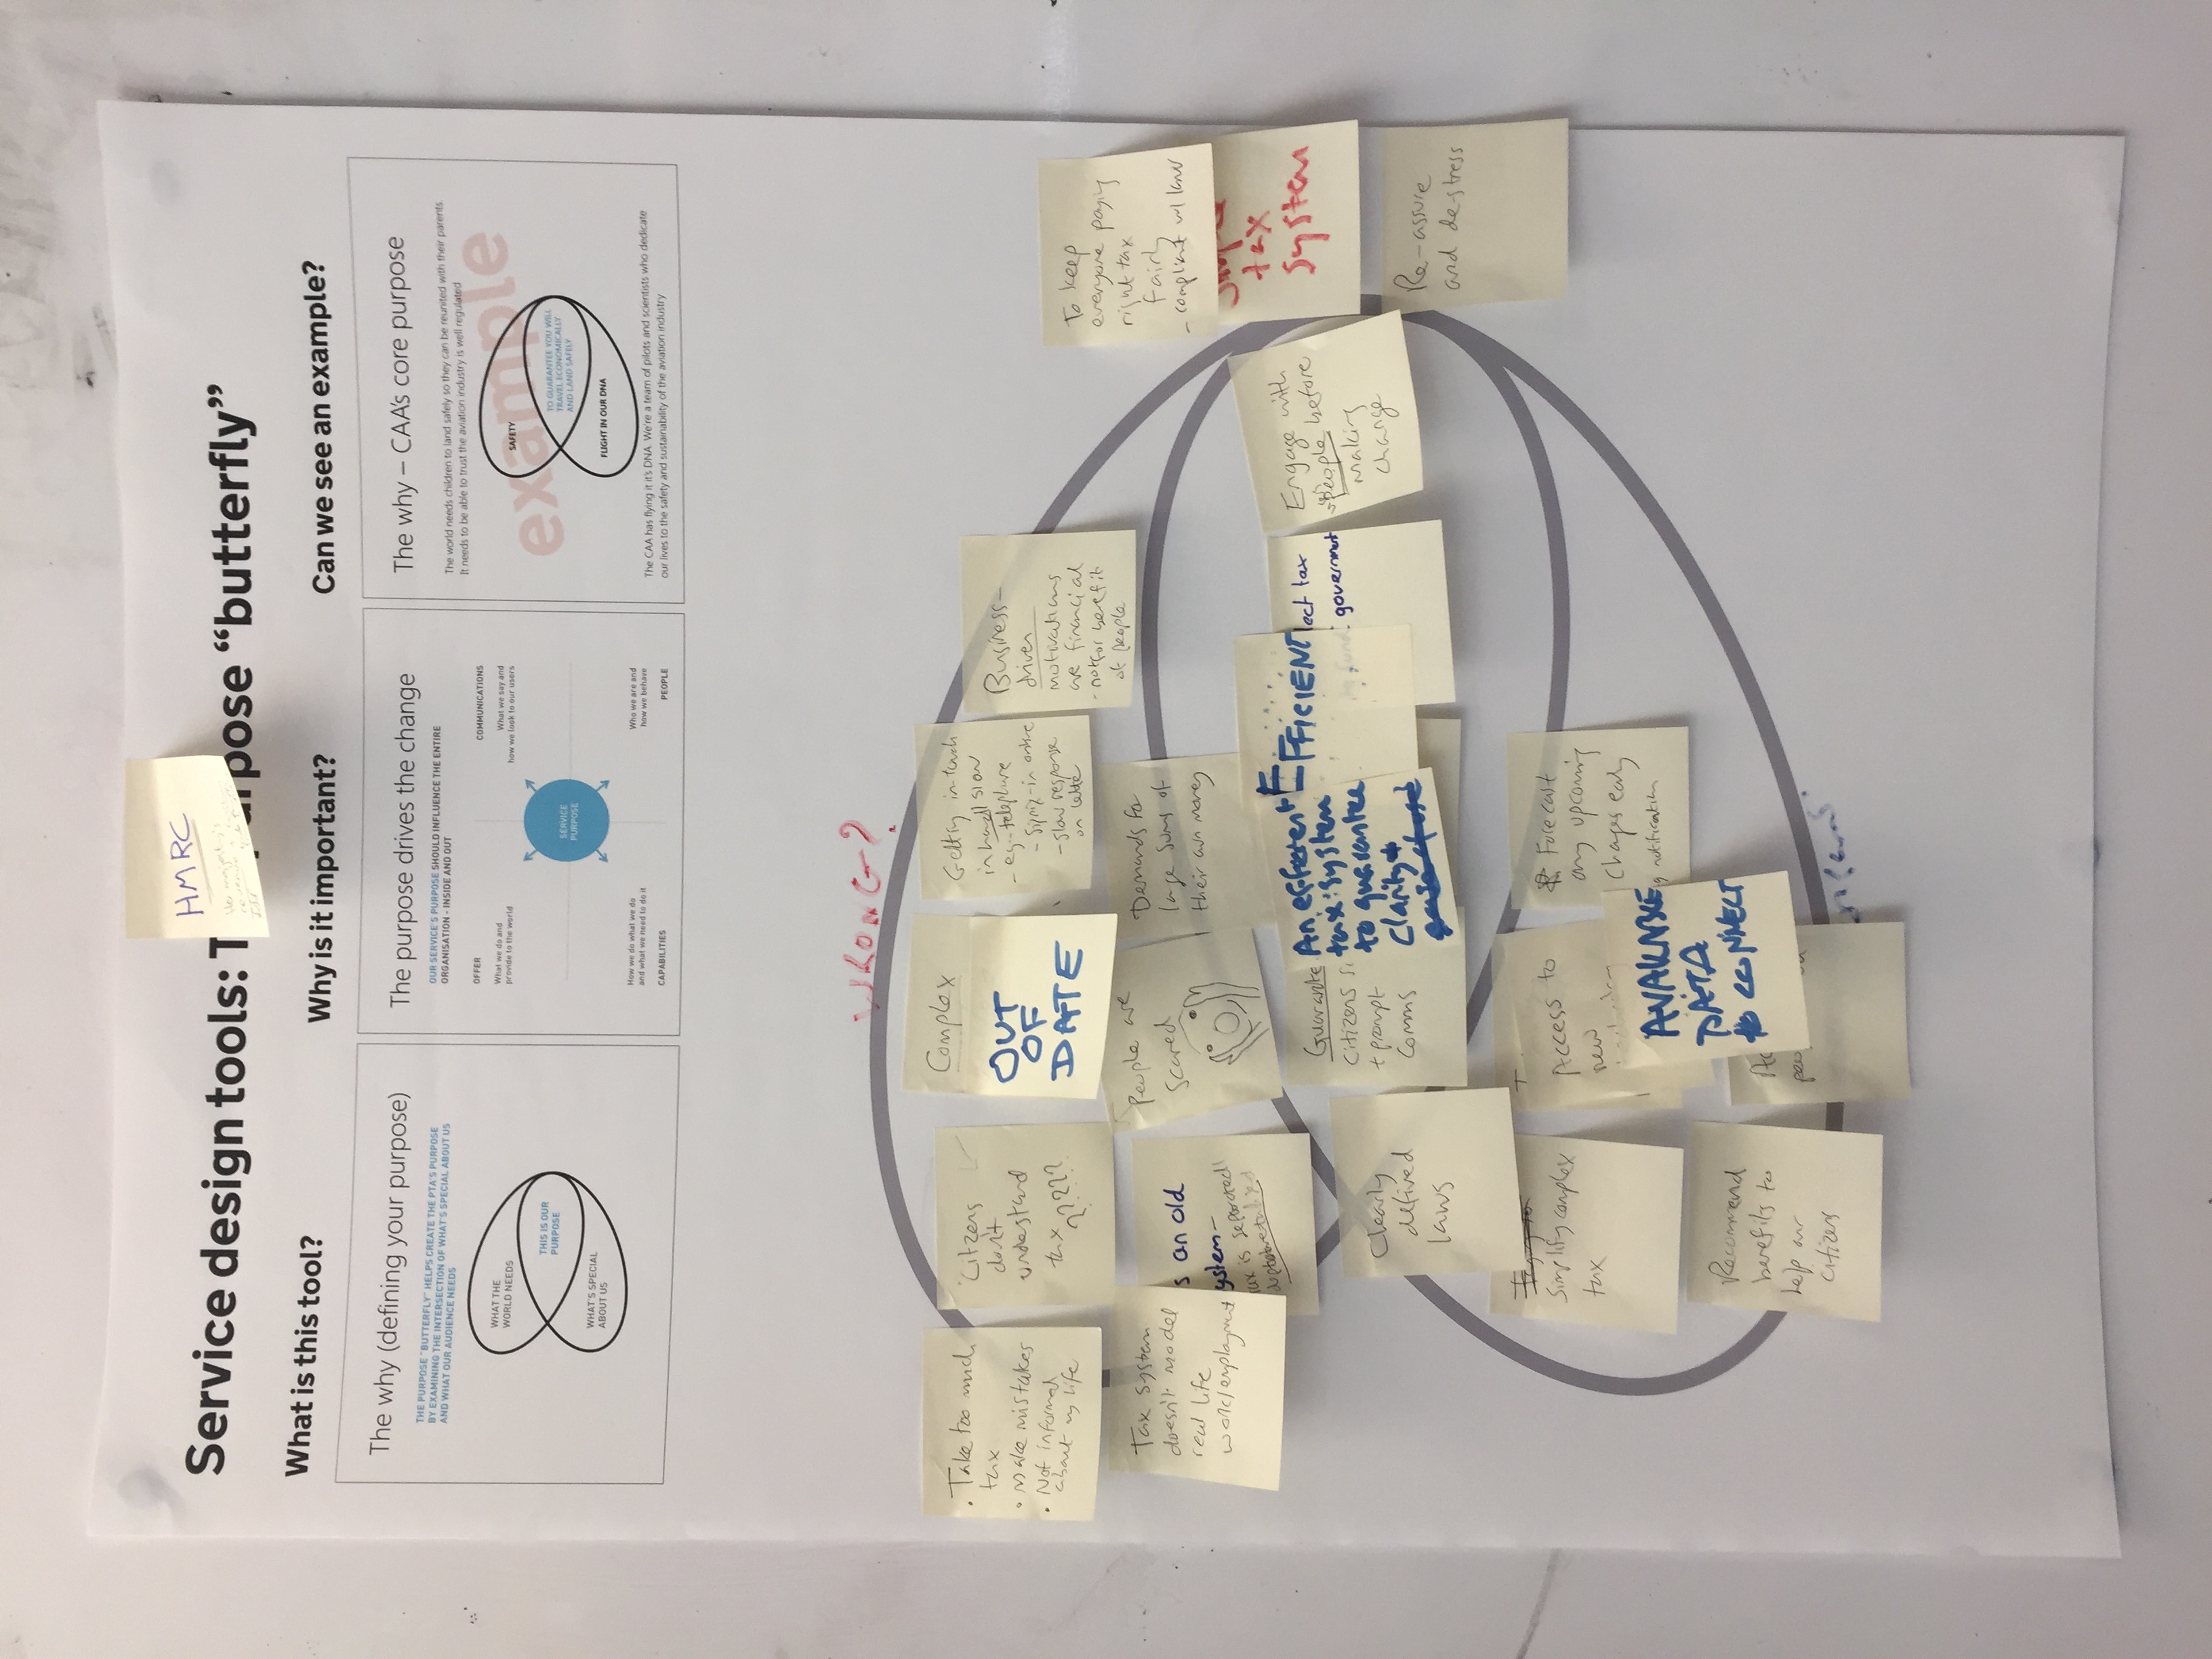 HMRC
Service design tools: T purpose “butterfly”
What is this tool?
The why (defining your purpose)
THE PURPOSE “BUTTERFLY” HELPS CREATE THE PTA'S PURPOSE
BY EXAMINING THE INTERSECTION OF WHAT'S SPECIAL ABOUT US
AND WHAT OUR AUDIENCE NEEDS
WHAT THE
WORLD NEEDS
THIS IS OUR
PURPOSE
WHAT'S SPECIAL
ABOUT US
Why is it important?
The purpose drives the change
OUR SERVICE'S PURPOSE SHOULD INFLUENCE THE ENTIRE
ORGANISATION - INSIDE AND OUT
OFFER
What we do and
provide to the world
COMMUNICATIONS
What we say and
how we look to our users
SERVICE
PURPOSE
How we do what we do
and what we need to do it
CAPABILITIES
Who we are and
how we behave
PEOPLE
Can we see an example?
The why – CAA's core purpose
The world needs children to land safely so they can be reunited with their parents
It needs to be able to trust the aviation industry is well regulated
example
SAFETY
TO GUARANTEE YOU WILL
TRAVEL ECONOMICALLY
AND LAND SAFELY
FLIGHT IN OUR DNA
The CAA has flying it it's DNA. We're a team of pilots and scientists who dedicate
our lives to the safety and sustainability of the aviation industry
WRONG?
• Take too much
tax
• Make mistakes
• Not informed
about my life
Citzens
don't
understand
tax
????
Complex
OUT
OF
DATE
Getting in touch
slow
- eg - telephone
- signing-in online
- slow response
on letter
Business-
driven
motivations
are financial
- not for benefit
of people
To keep
everyone paying
right tax
fairly
- compliant w/ laws
Tax system
doesn't model
real life
work/employment
s an old
ystem-
tax is separated!
People are
scared
Demands for
large sums of
their own money
tax
system
Guarantee
citizens
+ prompt
comms
An efficient
tax system
to guarantee
clarity +
ease of use
EFFICIENT
lect tax
government
Engage with
people before
making
change
Re-assure
and de-stress
Clearly
defined
laws
Simplify complex
tax
Access to
new
Forecast
any upcoming
changes early
notification
AVAILABLE
DATA
to CONNECT
Recommend
benefits to
help our
citizens